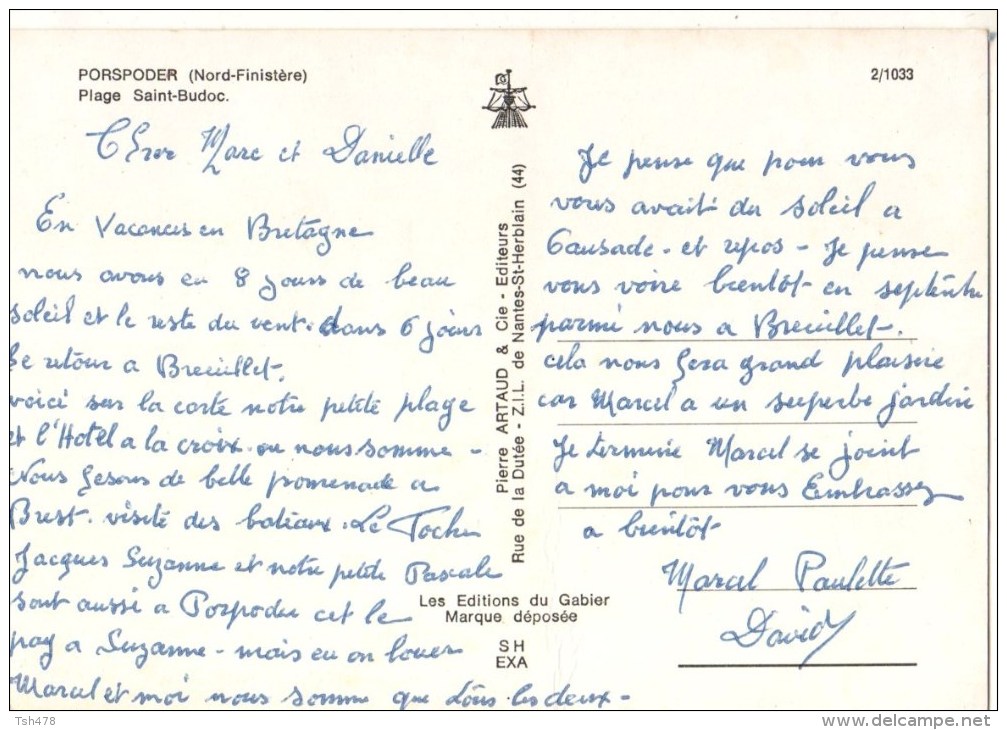 PORSPODER (Nord-Finistère)
Plage Saint-Budoc.
2/1033
Cher Marc et Danielle
En Vacances en Bretagne
nous avons eu 8 jours de beau
soleil et le reste du vent. dans 6 jours
se retour a Breuillet.
voici sur la carte notre petite plage
et l'Hotel a la croix ou nous somme -
Nous fesons de belle promenade a
Brest. visite des bateaux. Le
Jacques Suzanne et notre petite Pascale
sont aussi a Porpoder cet le
pay a Suzanne - mais eu on louer
Marcel et moi nous somme que tous les deux -
Je pense que pour vous
vous avait du soleil a
Causade - et repos - Je pense
vous voire bientôt en septembre
parmi nous a Breuillet.
cela nous fera grand plaisire
car Marcel a un superbe jardin
Je termine Marcel se joint
a moi pour vous Embrassez
a bientôt
Marcel Paulette
David
Pierre ARTAUD & Cie - Editeurs
Rue de la Dutée - Z.I.L. de Nantes-St-Herblain (44)
Les Editions du Gabier
Marque déposée
SH
EXA
Tsh478
www.delcampe.net